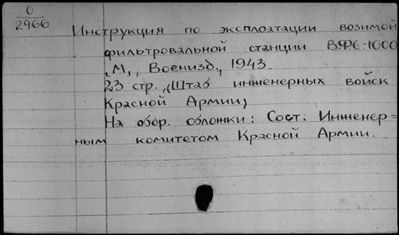 0
2966
Инструкция по эксплоатации возимой
фильтровальной станции ВФС-1000
М., Воениздат, 1943.
23 стр. (Штаб инженерных войск
Красной Армии)
На обор. обложки: Сост. Инженер=
ным комитетом Красной Армии.